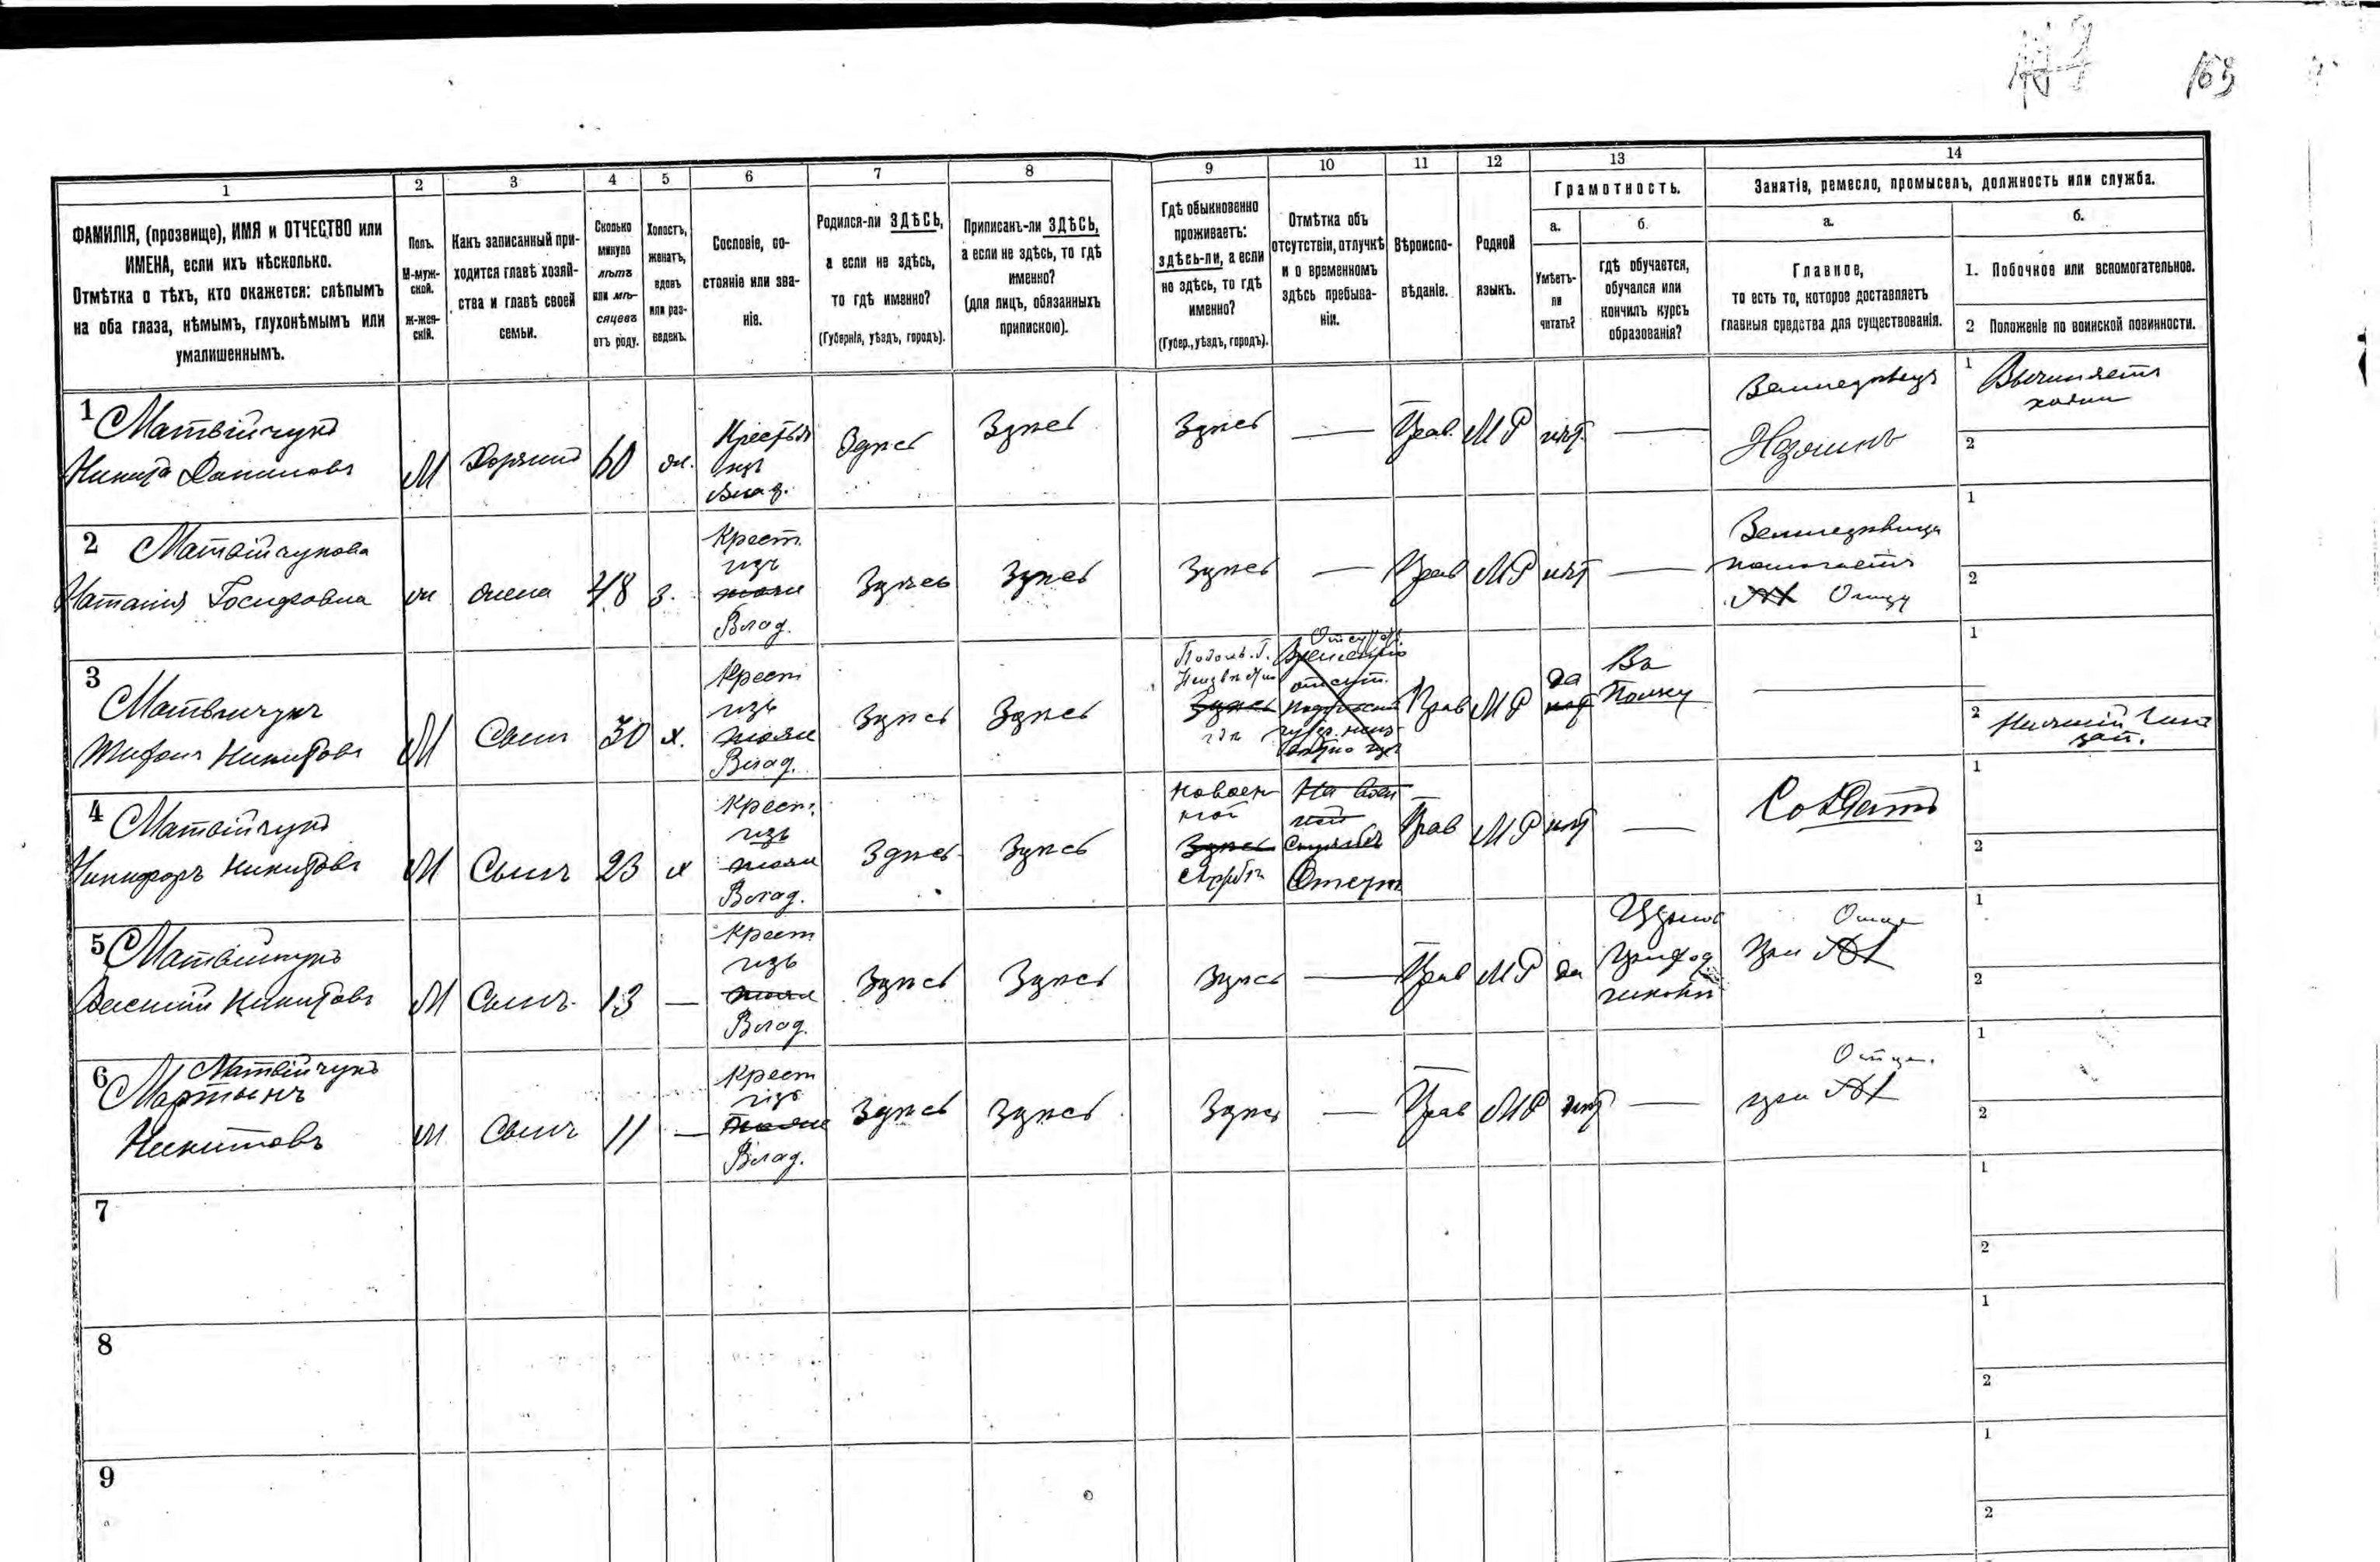 163
1
2
3
4
5
6
7
8
9
10
11
12
13
14
ФАМИЛІЯ, (прозвище), ИМЯ и ОТЧЕСТВО или
ИМЕНА, если ихъ нѣсколько.
Отмѣтка о тѣхъ, кто окажется: слѣпымъ
на оба глаза, нѣмымъ, глухонѣмымъ или
умалишеннымъ.
Полъ.
М-муж-
ской.
Ж-жен-
скій.
Какъ записанный при-
ходится главѣ хозяй-
ства и главѣ своей
семьи.
Сколько
минуло
лѣтъ
или мѣ-
сяцевъ
отъ роду.
Холостъ,
женатъ,
вдовъ
или раз-
веденъ.
Сословіе, со-
стояніе или зва-
ніе.
Родился-ли ЗДѢСЬ,
а если не здѣсь,
то гдѣ именно?
(Губернія, уѣздъ, городъ).
Приписанъ-ли ЗДѢСЬ,
а если не здѣсь, то гдѣ
именно?
(для лицъ, обязанныхъ
припискою).
Гдѣ обыкновенно
проживаетъ:
здѣсь-ли, а если
не здѣсь, то гдѣ
именно?
(Губер., уѣздъ, городъ).
Отмѣтка объ
отсутствіи, отлучкѣ
и о временномъ
здѣсь пребыва-
ніи.
Вѣроиспо-
вѣданіе.
Родной
языкъ.
Грамотность.
а.
Умѣетъ-
ли
читать?
б.
гдѣ обучается,
обучался или
кончилъ курсъ
образованія?
Занятіе, ремесло, промыселъ, должность или служба.
а.
Главное,
то есть то, которое доставляетъ
главныя средства для существованія.
б.
1. Побочное или вспомогательное.
2 Положеніе по воинской повинности.
1 Матвійчукъ
Никита Даниловъ
М
Хозяинъ
60
жн.
Крестья
изъ
Влад.
Здѣсь
Здѣсь
Здѣсь
—
Прав.
МР
нѣт
—
Земледѣлецъ
Хозяинъ
1
2
2 Матвійчукова
Наталія Госифовна
ж
жена
48
з.
Крест.
изъ
Влад.
Здѣсь
Здѣсь
Здѣсь
—
Прав
МР
нѣт
—
Земледѣлица
помогаетъ
Отцу
1
2
3
Матвійчукъ
Никитовъ
М
Сынъ
30
х.
Крест
изъ
Влад.
Здѣсь
Здѣсь
Подольс. Г.
Здѣсь
Отсут.
Прав
МР
да
нѣт
Въ
Полку
—
1
2 Нижній Чинъ
зап.
4 Матвійчукъ
Никифоръ Никитовъ
М
Сынъ
23
х
Крест.
изъ
Влад.
Здѣсь
Здѣсь
Здѣсь
На воен
ной
Службѣ
Отсут
Прав
МР
нѣт
—
Солдатъ
1
2
5 Матвійчукъ
Василій Никитовъ
М
Сынъ
13
—
Крест
изъ
Влад.
Здѣсь
Здѣсь
Здѣсь
—
Прав
МР
да
Приход
школы
Отцѣ
при
1
2
6 Матвійчукъ
Мартынъ
Никитовъ
М
Сынъ
11
—
Крест
изъ
Влад.
Здѣсь
Здѣсь
Здѣсь
—
Прав
МР
нѣт
—
Отцѣ.
при
1
2
7
1
2
8
1
2
9
1
2